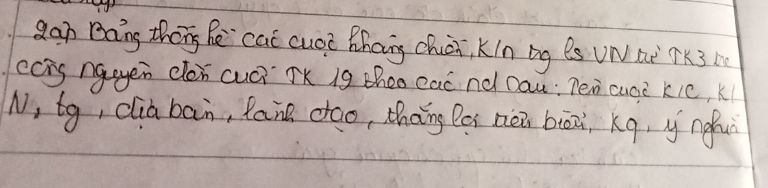 Lập Bảng thống kê các cuộc kháng chiến, K/n tg ls VN từ TK3 tr
công nguyên đến cuối TK 19 theo các nd sau: Tên cuộc K/C, K/
N, tg, địa bàn, lãnh đạo, thắng lợi tiêu biểu, Kq, ý nghĩa